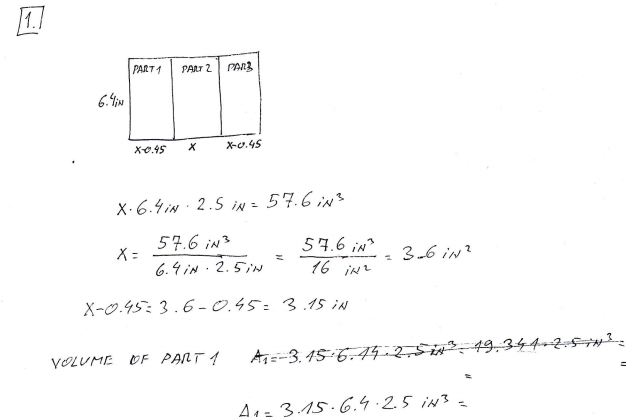 1.
PART 1 PART 2 PAR3
6.4in
x-0.45 x x-0.45
x · 6.4in · 2.5 in = 57.6 in³
x = 57.6 in³ / 6.4in · 2.5in = 57.6 in³ / 16 in² = 3.6 in²
x-0.45 = 3.6 - 0.45 = 3.15 in
VOLUME OF PART 1 A₁ = 3.15 · 6.14 · 2.5 in³ = 19.341 · 2.5 in³ =
= =
A₁ = 3.15 · 6.4 · 2.5 in³ =